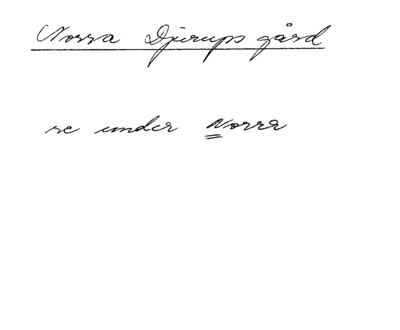 Norra Djurups gård
se under Norra